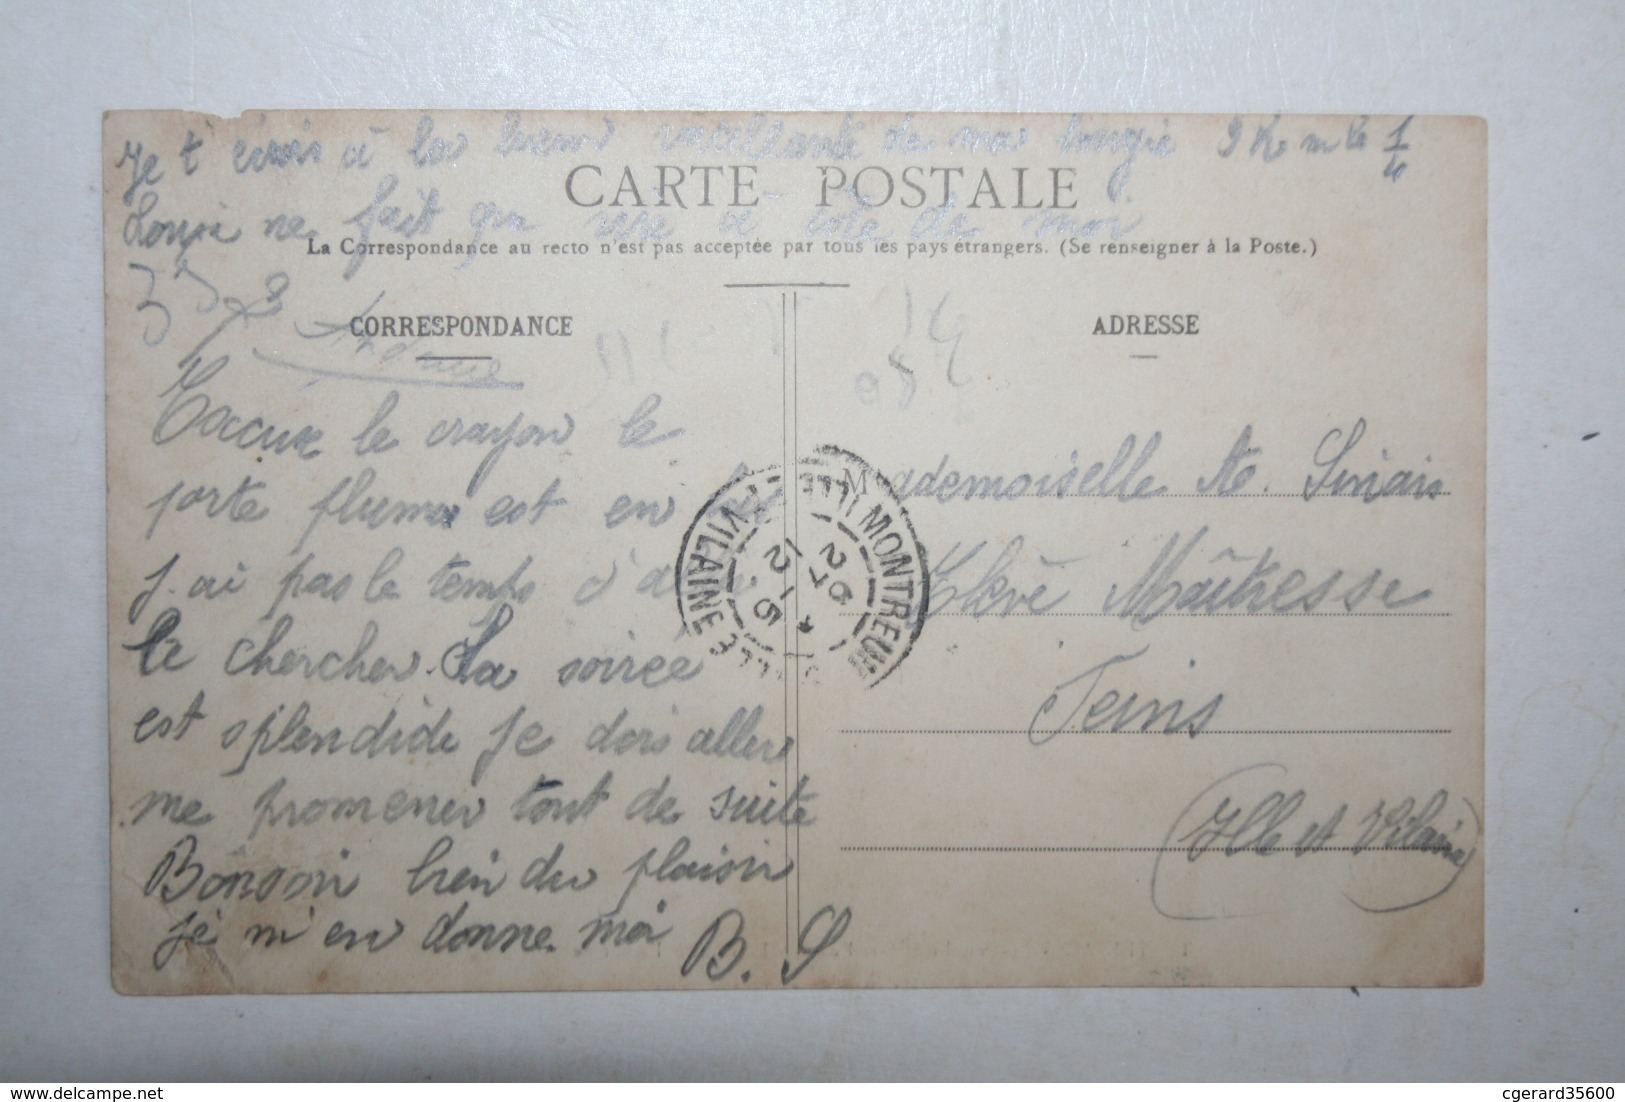 Je t'écris à la lueur vacillante de ma bougie 9 K m le 1/4
Louis ne fait qu rire à côté de moi
CARTE POSTALE
La Correspondance au recto n'est pas acceptée par tous les pays étrangers. (Se renseigner à la Poste.)
CORRESPONDANCE
ADRESSE
Excuse le crayon le
porte plume est en bas
j'ai pas le temps d'aller
le chercher. La soirée
est splendide je dois aller
me promener tout de suite
Bonsoir bien du plaisir
je m'en donne moi B. S
Mademoiselle A. Sinais
Elève Maîtresse
Feins
(Ille et Vilaine)
MONTREUIL
ILLE
VILAINE
12 15
27
cgerard35600